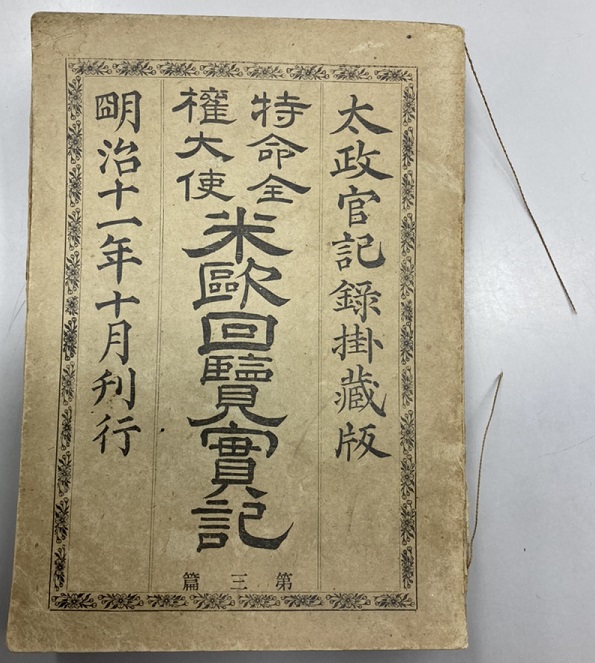 太政官記録掛藏版
特命全
權大使
米歐回覽實記
明治十一年十月刋行
第三篇